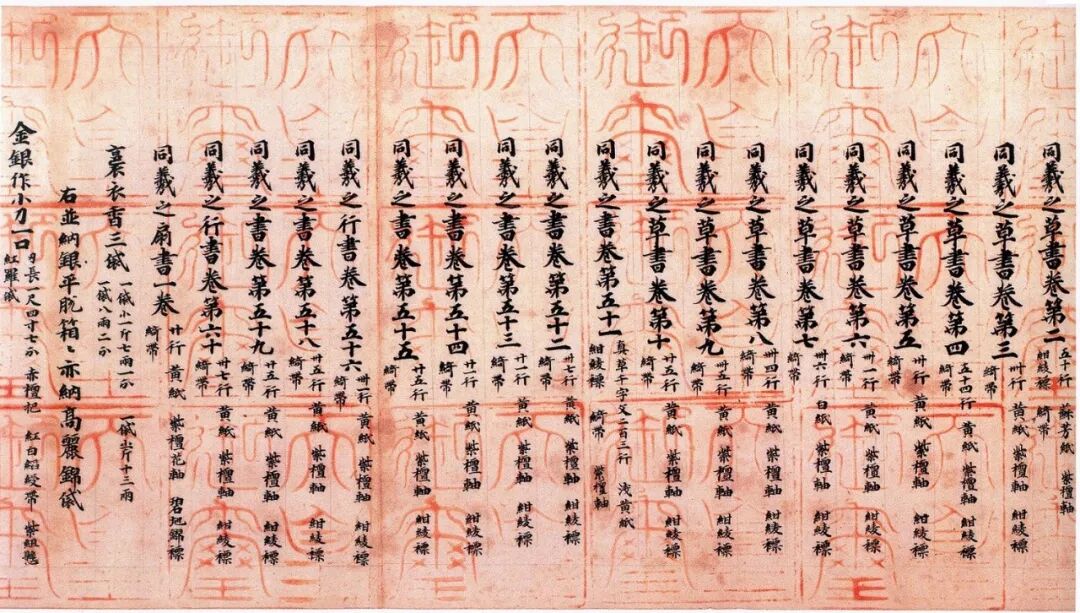 同羲之草書卷第二 五十行 蘇芳紙 紫檀軸 紺綾褾 綺帶
同羲之草書卷第三 卌行 黃紙 紫檀軸 紺綾褾 綺帶
同羲之草書卷第四 五十四行 黃紙 紫檀軸 紺綾褾 綺帶
同羲之草書卷第五 黃紙 紫檀軸 紺綾褾 綺帶
同羲之草書卷第六 卌一行 黃紙 紫檀軸 紺綾褾 綺帶
同羲之草書卷第七 卌六行 白紙 紫檀軸 紺綾褾 綺帶
同羲之草書卷第八 卌四行 黃紙 紫檀軸 紺綾褾 綺帶
同羲之草書卷第九 卅五行 黃紙 紫檀軸 紺綾褾 綺帶
同羲之草書卷第十 卅一行 黃紙 紫檀軸 紺綾褾 綺帶
同羲之書卷第五十一 真草千字文二百三行 淺黃紙 紺綾褾 綺帶 紫檀軸
同羲之書卷第五十二 卅七行 黃紙 紫檀軸 紺綾褾 綺帶
同羲之書卷第五十三 廿一行 黃紙 紫檀軸 紺綾褾 綺帶
同羲之書卷第五十四 廿一行 黃紙 紫檀軸 紺綾褾 綺帶
同羲之書卷第五十五 廿五行 黃紙 紫檀軸 紺綾褾 綺帶
同羲之行書卷第五十六 卌一行 黃紙 紫檀軸 紺綾褾 綺帶
同羲之書卷第五十八 廿行 黃紙 紫檀軸 紺綾褾 綺帶
同羲之書卷第五十九 廿五行 黃紙 紫檀軸 紺綾褾 綺帶
同羲之行書卷第六十 廿七行 黃紙 紫檀軸 紺綾褾 綺帶
同羲之扇書一卷 廿行 黃紙 紫檀花軸 碧地錦褾 綺帶
裛衣香三袋 一袋小一斤二兩一分 一袋小一斤十三兩 一袋八兩二分
右並納銀平脫箱々亦納高麗錦袋
金銀作小刀一口 刃長一尺四寸七分 赤檀把 紅白組綬帶 紫組懸 紅羅袋
天皇御璽